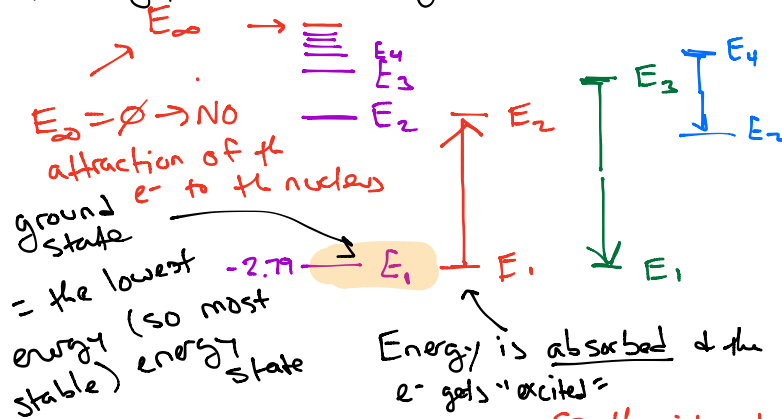 E∞
E4
E3
E2
E∞ = ∅ → NO
attraction of th
e- to th nucleus
ground
state
= the lowest
energy (so most
stable) energy
state
-2.79
E1
E2
E1
E3
E1
E4
Energy is absorbed & the
e- gets "excited"